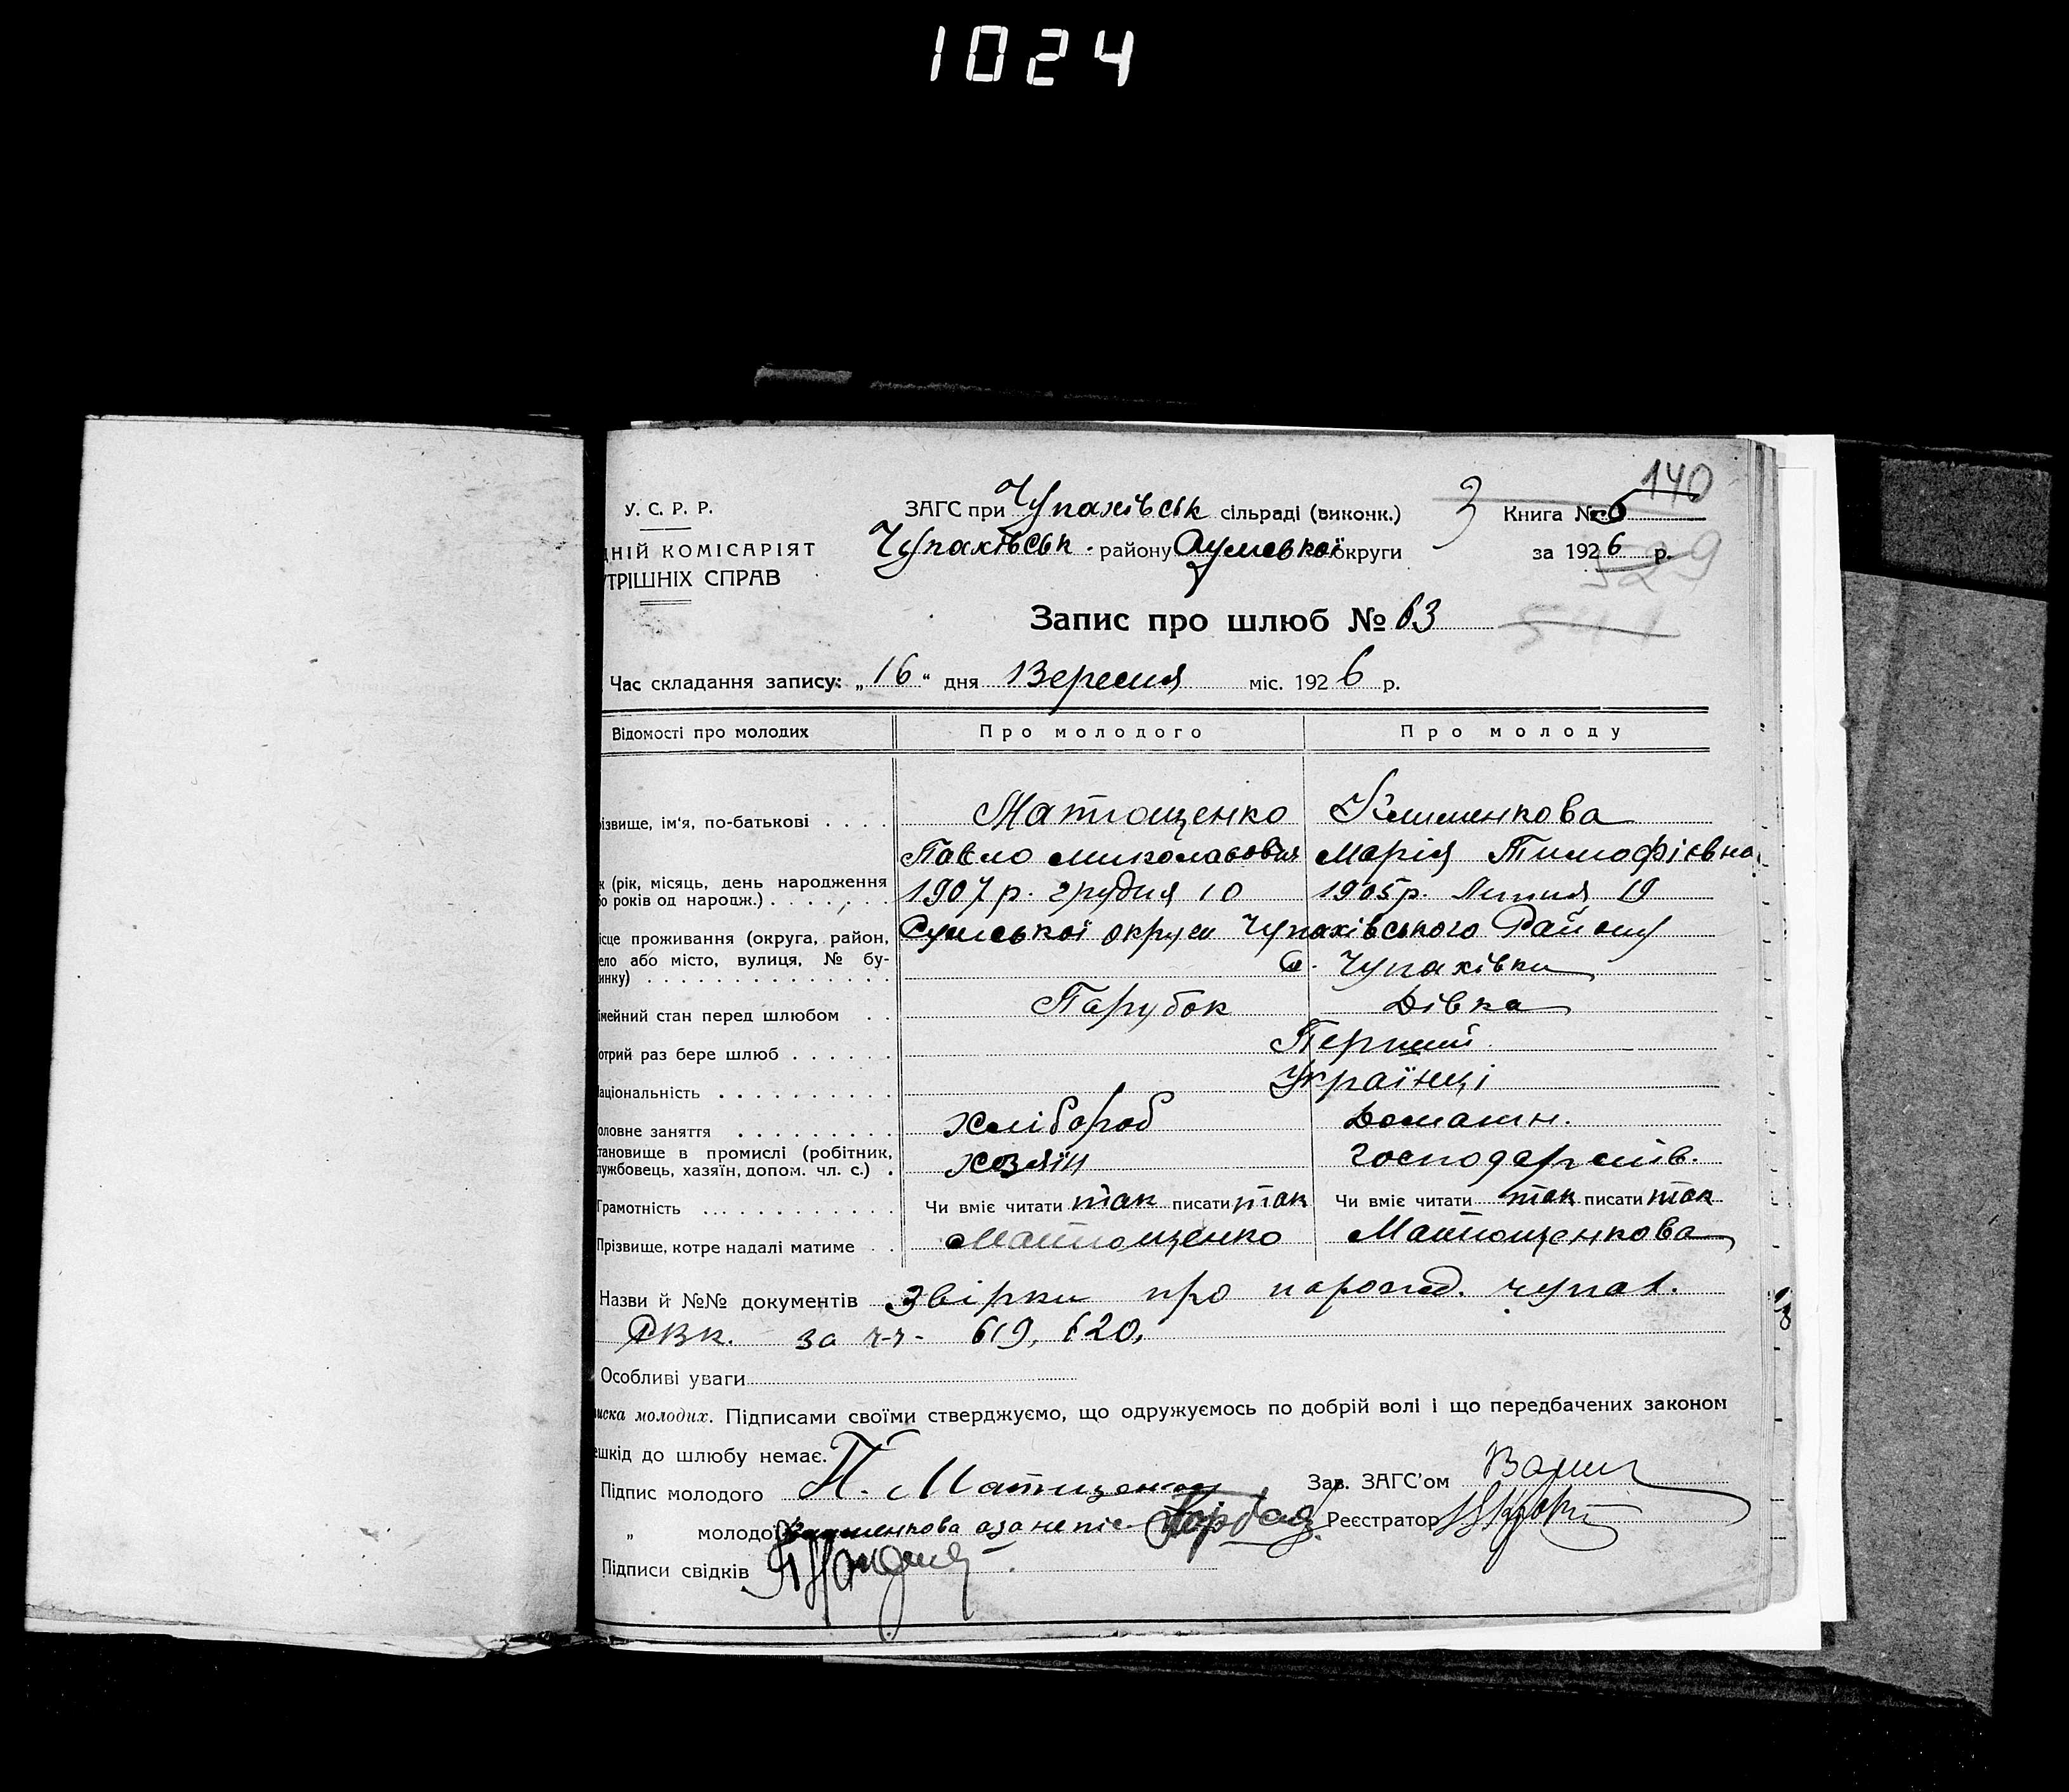 1024
140
У. С. Р. Р.
ЗАГС при Чупахівськ сільраді (виконк.) 3 Книга № 6
ДНІЙ КОМІСАРІЯТ
Чупахівськ. району Сумської округи за 1926 р.
529
ТРІШНІХ СПРАВ
Запис про шлюб № 63
541
Час складання запису: „16“ дня Вересня міс. 1926 р.
Відомості про молодих Про молодого Про молоду
ізвище, ім'я, по-батькові . . . . Матющенко Клименкова
Павло Миколайович Марія Тимофієвна
к (рік, місяць, день народження
о років од народж.) . . . . . . . 1907 р. грудня 10 1905 р. Липня 19
ісце проживання (округа, район, Сумської округи Чупахівського Району
ело або місто, вулиця, № бу-
инку) . . . . . . . . . . . . . . С. Чупахівки
імейний стан перед шлюбом . . Парубок Дівка
отрий раз бере шлюб . . . . . . Перший
аціональність . . . . . . . . . . Українці
оловне заняття . . . . . . . . . Хлібороб Домашн.
тановище в промислі (робітник,
лужбовець, хазяїн, допом. чл. с.) . Хозяїн господарств.
Грамотність . . . . . . . . . . . . Чи вміє читати так писати так Чи вміє читати так писати так
Прізвище, котре надалі матиме . . Матющенко Матющенкова
Назви й №№ документів Звірки про народ. чупах.
РВК. за ч-ч- 619, 620,
Особливі уваги
иска молодих. Підписами своїми стверджуємо, що одружуємось по добрій волі і що передбачених законом
ешкід до шлюбу немає.
Підпис молодого П. Матющенко Зав. ЗАГС'ом
„ молодої Клименкова а за неї Горбач Реєстратор
Підписи свідків